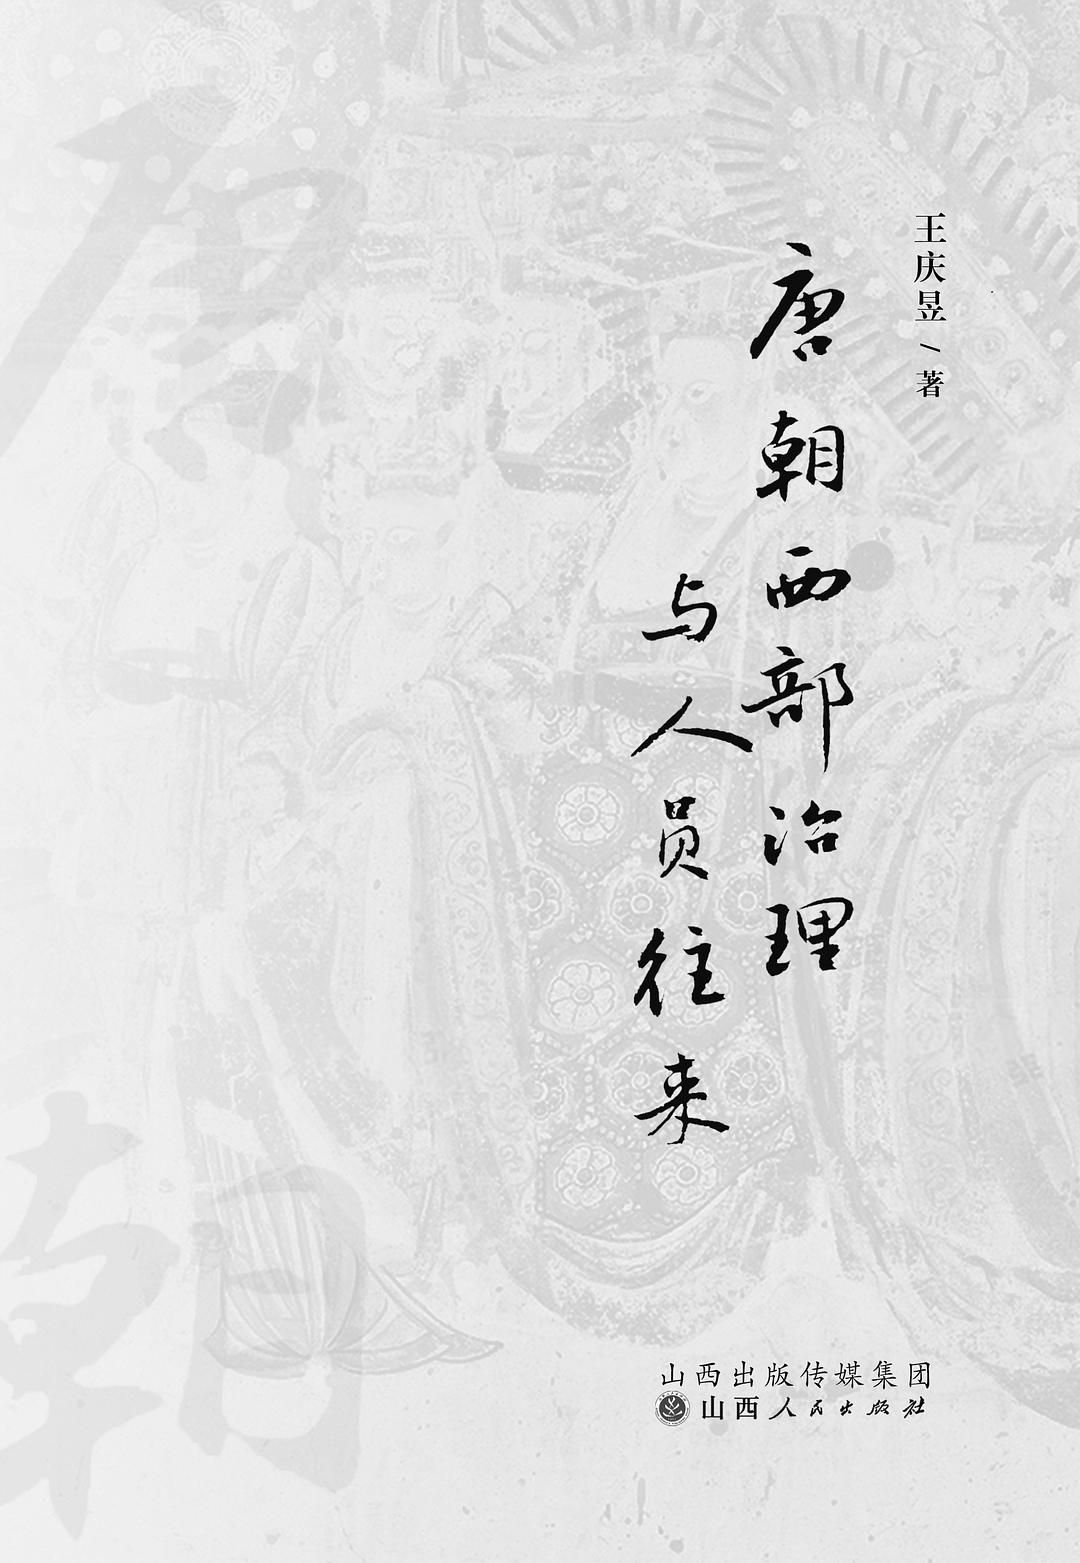 王庆昱/著
唐朝西部治理
与人员往来
唐朝
山西出版传媒集团
山西人民出版社